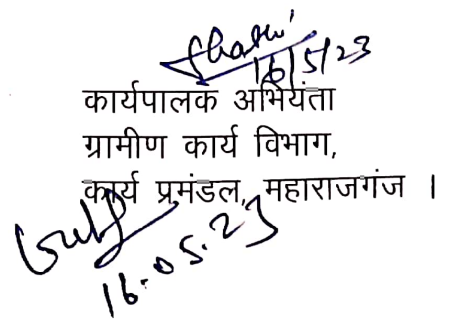 16/5/23
कार्यपालक अभियंता
ग्रामीण कार्य विभाग,
कार्य प्रमंडल, महाराजगंज ।
16.05.23